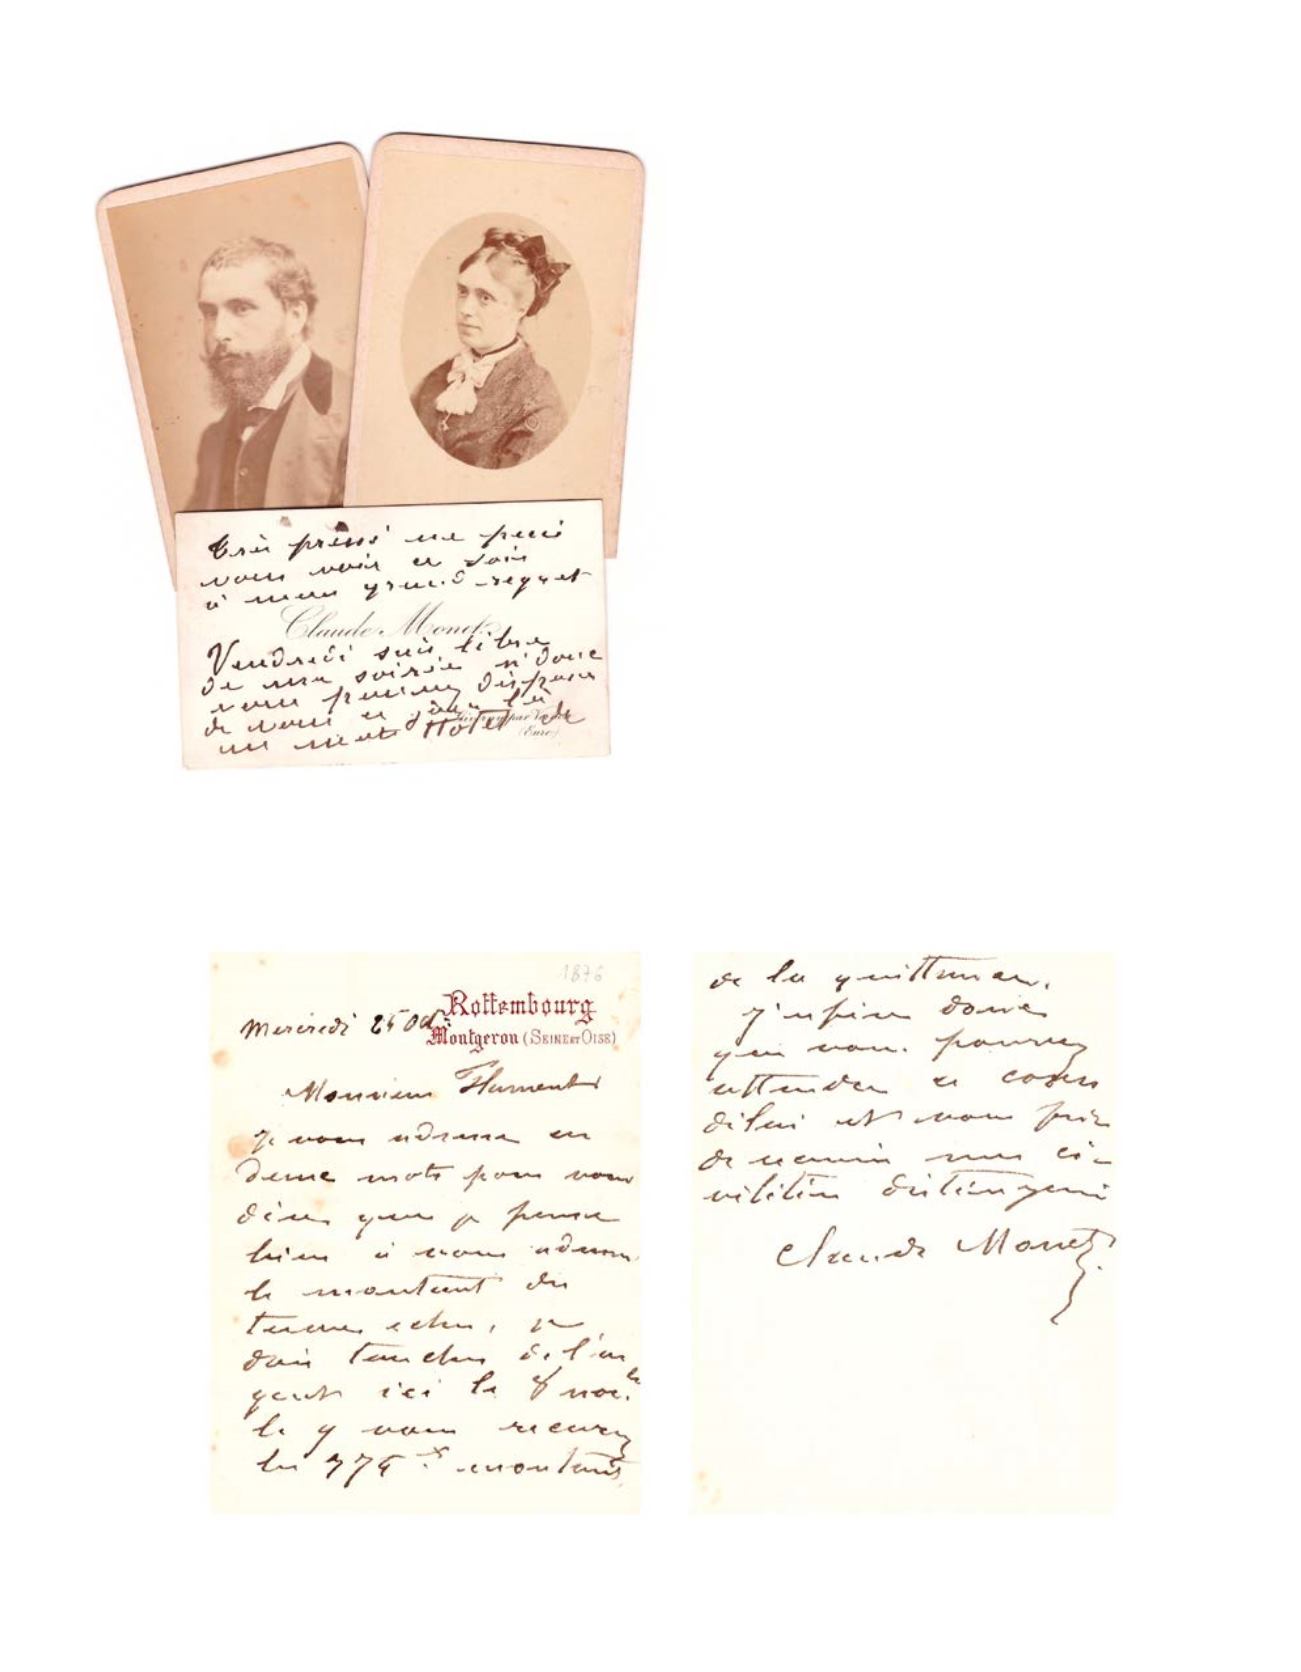 très pressé ne puis
vous voir ce soir
à mon grand regret
Claude Monet
Vendredi suis libre
de ma soirée si donc
vous pouvez disposer
de vous ce jour là
Giverny par Vernon
un mot Hôtel de
(Eure)
1876
Rottembourg
Mercredi 25 Oct
Montgeron (SEINE ET OISE)
Monsieur Flament
je vous adresse ces
deux mots pour vous
dire que je pense
bien à vous adresser
le montant du
terme echu, je
dois toucher de l'ar
gent ici le 8 nov.
le 9 vous recevrez
les montant
de la quittance.
j'espère donc
que vous pourrez
attendre ce court
délai et vous prie
de recevoir mes ci-
vilités distinguées
Claude Monet